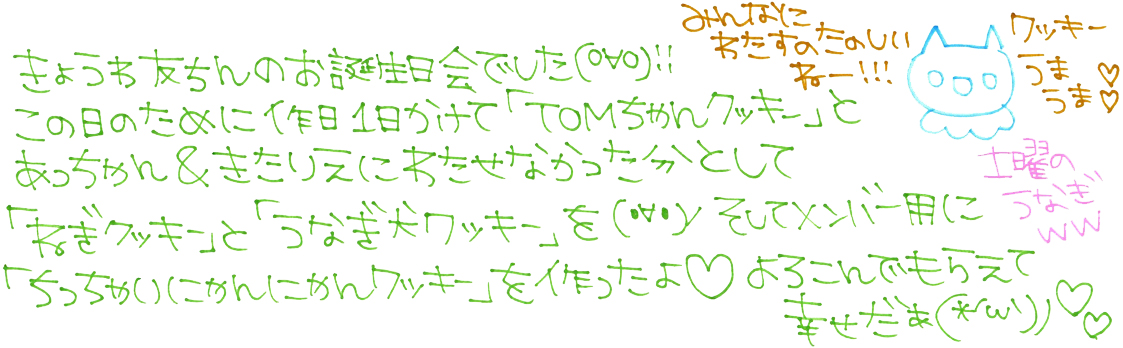 きょうわ友ちんのお誕生日会でした(o∀o)!!
この日のために作日1日かけて「TOMちゃんクッキー」と
あっちゃん&きたりえにわたせなかった分として
「ねぎクッキー」と「うなぎ犬クッキー」を(・∀・)ノ そしてメンバー用に
「ちっちゃいにかんにかんクッキー」を作ったよ♡ よろこんでもらえて
幸せだぁ(*´ω`))♡♡
みんなに
わたすのたのしい
ねー!!!
クッキー
うま♡
うま♡
土曜の
うなぎ
ww